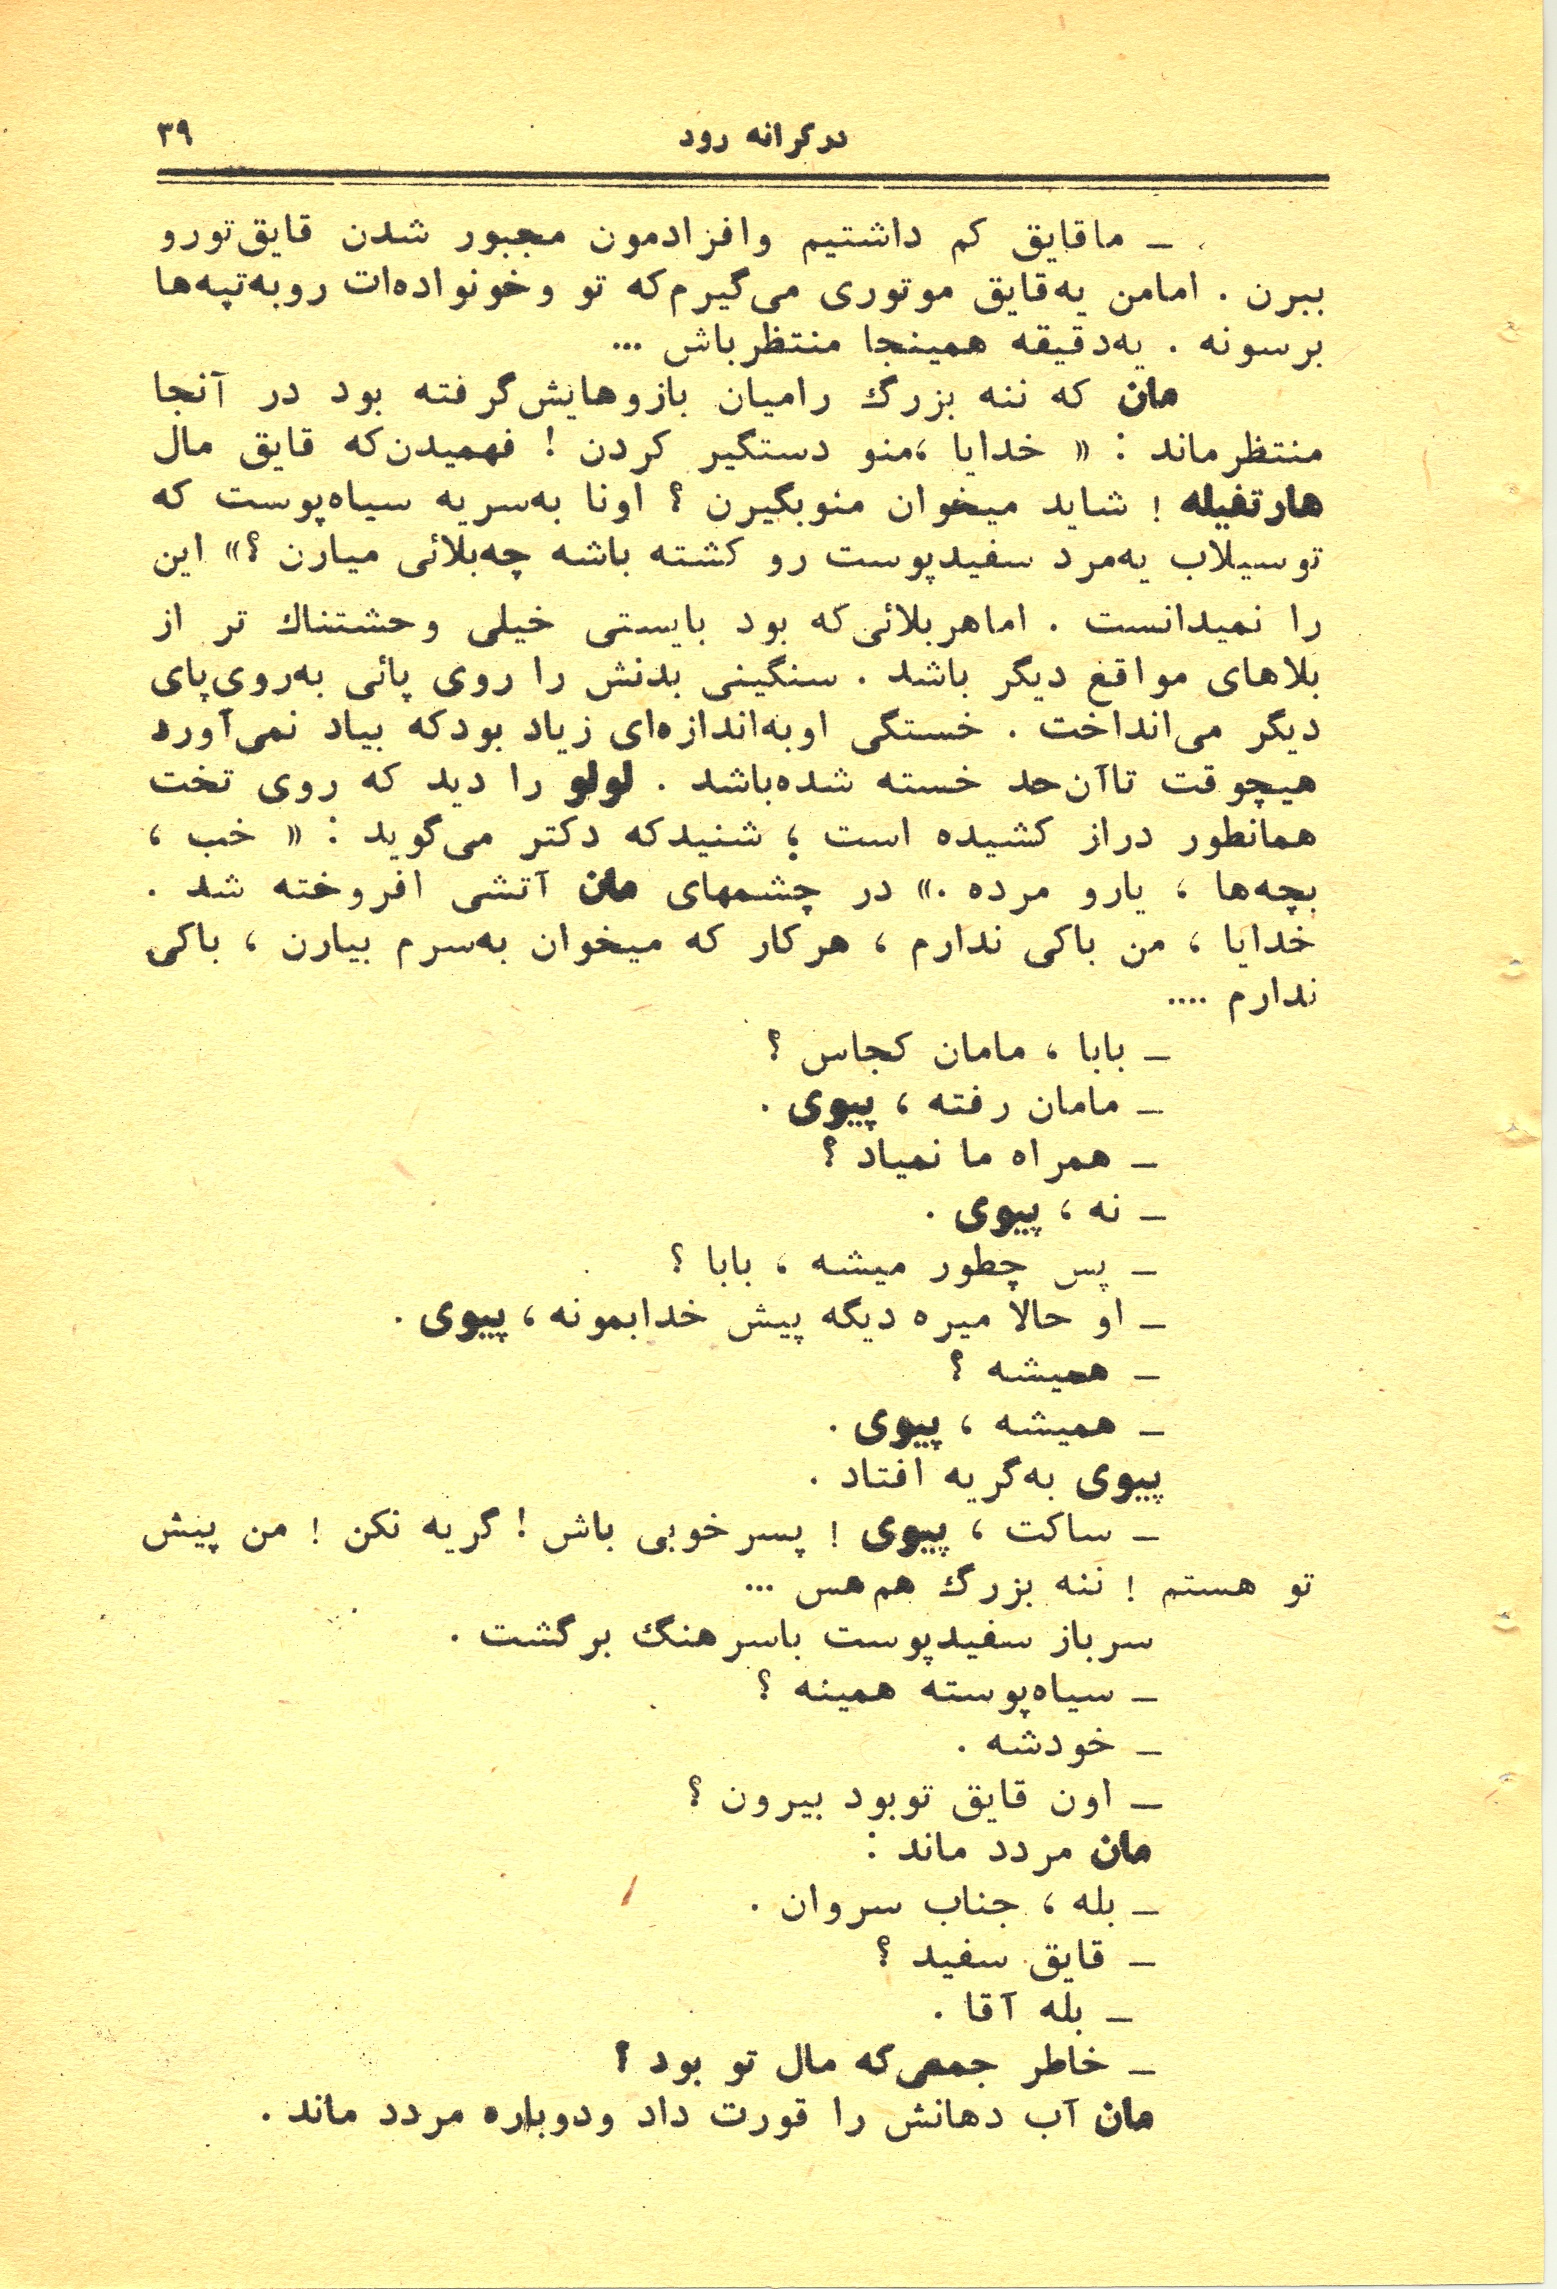 در کرانه رود ۳۹
ـ ما قایق کم داشتیم و افرادمون مجبور شدن قایق تورو
ببرن . اما من یه قایق موتوری می‌گیرم که تو و خونواده‌ات رو به تپه‌ها
برسونه . یه دقیقه همینجا منتظر باش ...
مان که ننه بزرگ را میان بازوهایش گرفته بود در آنجا
منتظر ماند : « خدایا ، منو دستگیر کردن ! فهمیدن که قایق مال
هارتفیله ! شاید میخوان منو بگیرن ؟ اونا به سر یه سیاه‌پوست که
تو سیلاب یه مرد سفیدپوست رو کشته باشه چه بلائی میارن ؟» این
را نمیدانست . اما هر بلائی که بود بایستی خیلی وحشتناک تر از
بلاهای مواقع دیگر باشد . سنگینی بدنش را روی پائی به روی پای
دیگر می‌انداخت . خستگی او به اندازه‌ای زیاد بود که بیاد نمی‌آورد
هیچوقت تا آن حد خسته شده باشد . لولو را دید که روی تخت
همانطور دراز کشیده است ؛ شنید که دکتر می‌گوید : « خب ،
بچه‌ها ، یارو مرده .» در چشمهای مان آتشی افروخته شد .
خدایا ، من باکی ندارم ، هر کار که میخوان به سرم بیارن ، باکی
ندارم ....
ـ بابا ، مامان کجاس ؟
ـ مامان رفته ، پیوی .
ـ همراه ما نمیاد ؟
ـ نه ، پیوی .
ـ پس چطور میشه ، بابا ؟
ـ او حالا میره دیگه پیش خدا بمونه ، پیوی .
ـ همیشه ؟
ـ همیشه ، پیوی .
پیوی به گریه افتاد .
ـ ساکت ، پیوی ! پسر خوبی باش ! گریه نکن ! من پیش
تو هستم ! ننه بزرگ هم هس ...
سرباز سفیدپوست با سرهنگ برگشت .
ـ سیاه‌پوسته همینه ؟
ـ خودشه .
ـ اون قایق تو بود بیرون ؟
مان مردد ماند :
ـ بله ، جناب سروان .
ـ قایق سفید ؟
ـ بله آقا .
ـ خاطر جمعی که مال تو بود ؟
مان آب دهانش را قورت داد و دوباره مردد ماند .